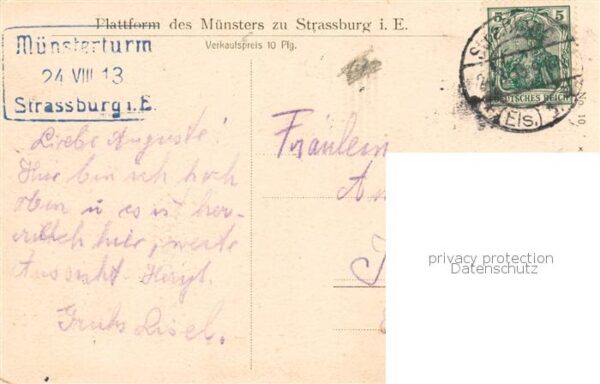 Plattform des Münsters zu Strassburg i. E.
Verkaufspreis 10 Pfg.
Münsterturm
24 VIII 13
Strassburg i. E.
5 5
DEUTSCHES REICH
(Els.)
No. 10
Liebe Auguste!
Hier bin ich hoch
oben u es ist herr-
lich hier,
Aussicht. Herzl.
Gruß Lisel.
Fräulein
privacy protection
Datenschutz